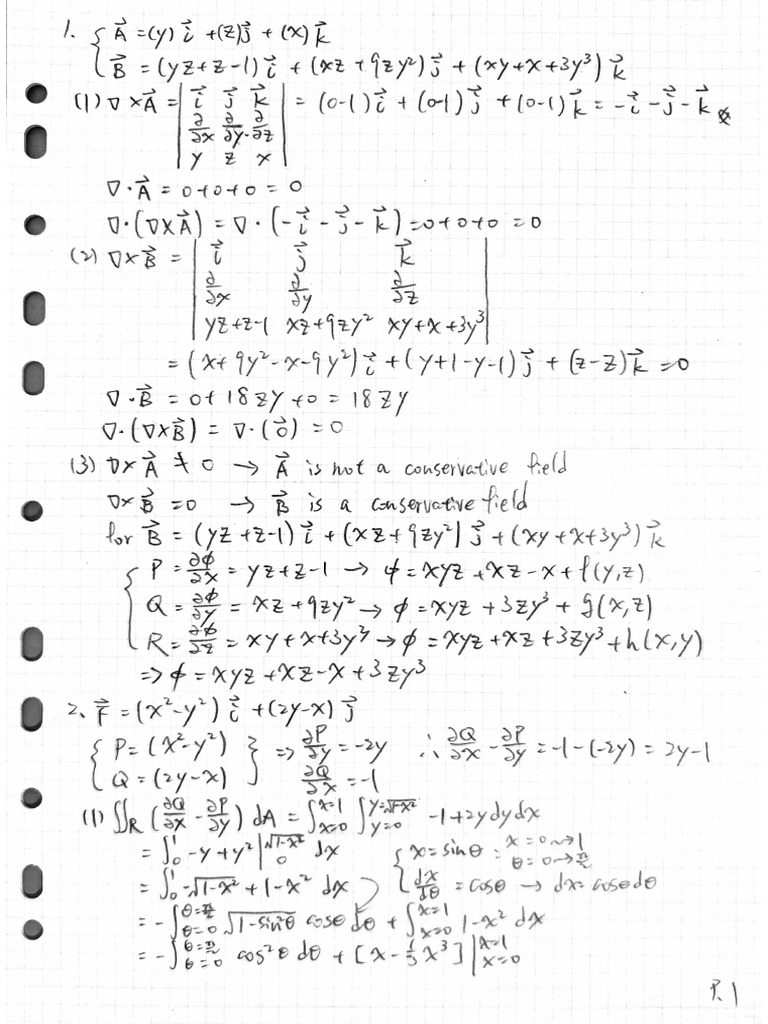 1. { A⃗ = (y) i⃗ + (z) j⃗ + (x) k⃗
B⃗ = (yz+z-1) i⃗ + (xz+9zy²) j⃗ + (xy+x+3y³) k⃗
(1) ∇×A⃗ = | i⃗ j⃗ k⃗ | = (0-1) i⃗ + (0-1) j⃗ + (0-1) k⃗ = -i⃗ - j⃗ - k⃗
∂/∂x ∂/∂y ∂/∂z
y z x
∇·A⃗ = 0+0+0 = 0
∇·(∇×A⃗) = ∇·(-i⃗ - j⃗ - k⃗) = 0+0+0 = 0
(2) ∇×B⃗ = | i⃗ j⃗ k⃗ |
∂/∂x ∂/∂y ∂/∂z
yz+z-1 xz+9zy² xy+x+3y³
= (x+9y²-x-9y²) i⃗ + (y+1-y-1) j⃗ + (z-z) k⃗ = 0
∇·B⃗ = 0+18zy+0 = 18zy
∇·(∇×B⃗) = ∇·(0⃗) = 0
(3) ∇×A⃗ ≠ 0 → A⃗ is not a conservative field
∇×B⃗ = 0 → B⃗ is a conservative field
for B⃗ = (yz+z-1) i⃗ + (xz+9zy²) j⃗ + (xy+x+3y³) k⃗
{ P = ∂ϕ/∂x = yz+z-1 → ϕ = xyz+xz-x+f(y,z)
Q = ∂ϕ/∂y = xz+9zy² → ϕ = xyz+3zy³+g(x,z)
R = ∂ϕ/∂z = xy+x+3y³ → ϕ = xyz+xz+3zy³+h(x,y)
⇒ ϕ = xyz+xz-x+3zy³
2. F⃗ = (x²-y²) i⃗ + (2y-x) j⃗
{ P = (x²-y²) } ⇒ ∂P/∂y = -2y ∴ ∂Q/∂x - ∂P/∂y = -1-(-2y) = 2y-1
Q = (2y-x) ∂Q/∂x = -1
(1) ∬R (∂Q/∂x - ∂P/∂y) dA = ∫x=0 x=1 ∫y=0 y=√1-x² -1+2y dy dx
= ∫0 1 -y+y² |0 √1-x² dx { x = sinθ = x=0→1 θ=0→π/2
= ∫0 1 -√1-x² + 1-x² dx dx/dθ = cosθ → dx = cosθ dθ
= -∫θ=0 θ=π/2 √1-sin²θ cosθ dθ + ∫x=0 x=1 1-x² dx
= -∫θ=0 θ=π/2 cos²θ dθ + [x - 1/3 x³] |x=0 x=1
P.1